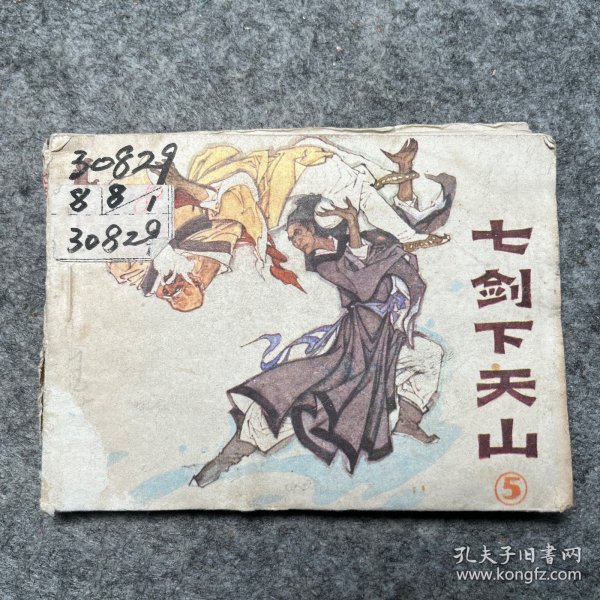 30829
8 8 1
30829
七剑下天山
5
孔夫子旧書网
www.kongfz.com